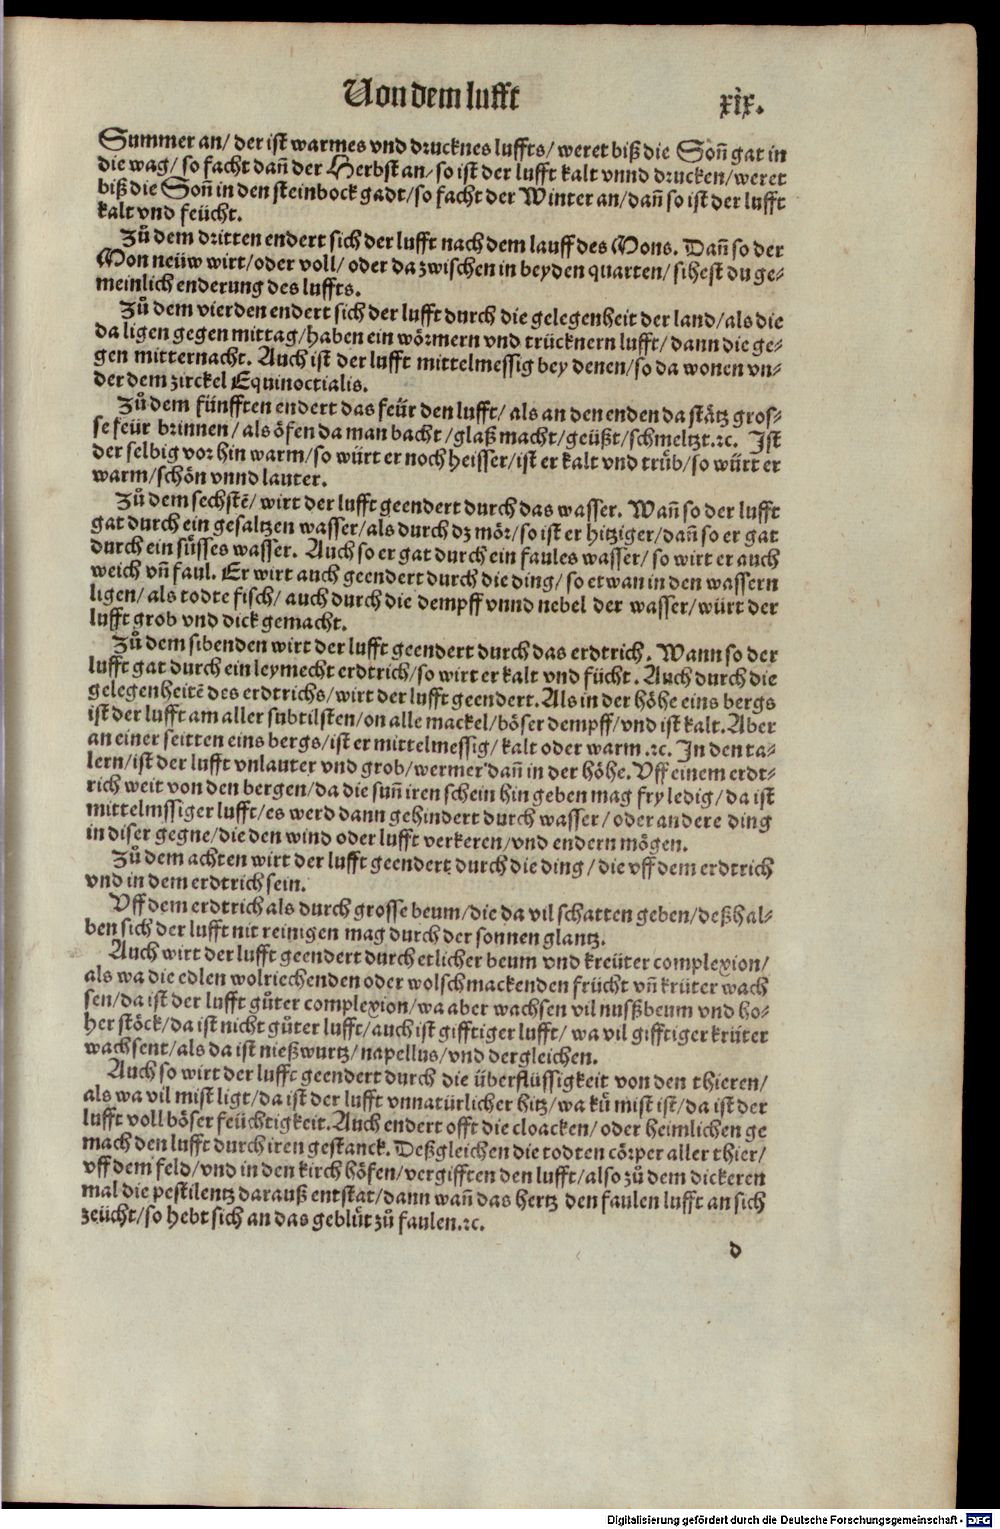 Von dem lufft
xix.
Summer an/ der ist warmes vnd drucknes luffts/ weret biß die Soñ gat in
die wag/ so facht dañ der Herbst an/ so ist der lufft kalt vnnd drucken/ weret
biß die Soñ in den steinbock gadt/ so facht der Winter an/ dañ so ist der lufft
kalt vnd feücht.
Zů dem dritten endert sich der lufft nach dem lauff des Mons. Dañ so der
Mon neüw wirt/ oder voll/ oder da zwischen in beyden quarten/ sihest du ge⸗
meinlich enderung des luffts.
Zů dem vierden endert sich der lufft durch die gelegenheit der land/ als die
da ligen gegen mittag/ haben ein wörmern vnd trücknern lufft/ dann die ge⸗
gen mitternacht. Auch ist der lufft mittelmessig bey denen/ so da wonen vn⸗
der dem zirckel Equinoctialis.
Zů dem fünfften endert das feür den lufft/ als an den enden da stätz gros⸗
se feür brinnen/ als öfen da man bacht/ glaß macht/ geüßt/ schmeltzt.ꝛc. Ist
der selbig vor hin warm/ so würt er noch heisser/ ist er kalt vnd trüb/ so würt er
warm/ schön vnnd lauter.
Zů dem sechstē/ wirt der lufft geendert durch das wasser. Wañ so der lufft
gat durch ein gesaltzen wasser/ als durch dz mör/ so ist er hitziger/ dañ so er gat
durch ein süsses wasser. Auch so er gat durch ein faules wasser/ so wirt er auch
weich vñ faul. Er wirt auch geendert durch die ding/ so etwan in den wassern
ligen/ als todte fisch/ auch durch die dempff vnnd nebel der wasser/ würt der
lufft grob vnd dick gemacht.
Zů dem sibenden wirt der lufft geendert durch das erdtrich. Wann so der
lufft gat durch ein leymecht erdtrich/ so wirt er kalt vnd fücht. Auch durch die
gelegenheitē des erdtrichs/ wirt der lufft geendert. Als in der höhe eins bergs
ist der lufft am aller subtilsten/ on alle mackel/ böser dempff/ vnd ist kalt. Aber
an einer seitten eins bergs/ ist er mittelmessig/ kalt oder warm .ꝛc. In den ta⸗
lern/ ist der lufft vnlauter vnd grob/ wermer dañ in der höhe. Vff einem erdt⸗
rich weit von den bergen/ da die suñ iren schein hin geben mag fry ledig/ da ist
mittelmssiger lufft/ es werd dann gehindert durch wasser/ oder andere ding
in diser gegne/ die den wind oder lufft verkeren/ vnd endern mögen.
Zů dem achten wirt der lufft geendert durch die ding/ die vff dem erdtrich
vnd in dem erdtrich sein.
Vff dem erdtrich als durch grosse beum/ die da vil schatten geben/ deßhal⸗
ben sich der lufft nit reinigen mag durch der sonnen glantz.
Auch wirt der lufft geendert durch etlicher beum vnd kreüter complexion/
als wa die edlen wolriechenden oder wolschmackenden frücht vñ krüter wach
sen/ da ist der lufft gůter complexion/ wa aber wachsen vil nußbeum vnd ho⸗
her stöck/ da ist nicht gůter lufft/ auch ist gifftiger lufft/ wa vil gifftiger krüter
wachsent/ als da ist nießwurtz/ napellus/ vnd dergleichen.
Auch so wirt der lufft geendert durch die überflüssigkeit von den thieren/
als wa vil mist ligt/ da ist der lufft vnnatürlicher hitz/ wa kü mist ist/ da ist der
lufft voll böser feüchtigkeit. Auch endert offt die cloacken/ oder heimlichen ge
mach den lufft durch iren gestanck. Deßgleichen die todten cörper aller thier/
vff dem feld/ vnd in den kirch höfen/ vergifften den lufft/ also zů dem dickeren
mal die pestilentz darauß entstat/ dann wañ das hertz den faulen lufft an sich
zeücht/ so hebt sich an das geblüt zů faulen.ꝛc.
d
Digitalisierung gefördert durch die Deutsche Forschungsgemeinschaft - DFG